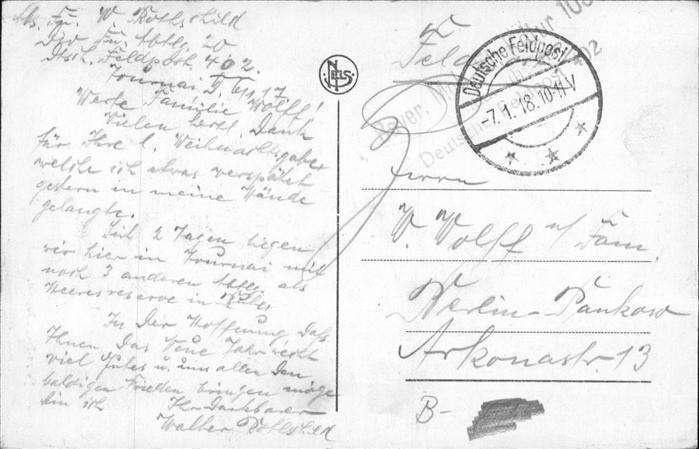 Abs. Fu. W. Rothschild
Div. Fu. Abtlg. 20
Dtsch. Feldpost 402.
Tournai
Werte Familie Wolff!
Vielen herzl. Dank
für Ihre l. Weihnachtsgabe,
welche ich etwas verspätet
gestern in meine Hände
gelangte.
Seit 2 Tagen liegen
wir hier in Tournai mit
noch 3 anderen Abtlg. als
Heeresreserve in Ruhe.
In der Hoffnung, daß
Ihnen das Neue Jahr recht
viel Gutes u. uns allen den
baldigen Frieden bringen möge
bin ich
Ihr dankbarer
Walter Rothschild
NELS
Feldpost
Deutsche Feldpost
-7.1.18.10-11V
Herrn
W. Wolff u/ Fam.
Berlin-Pankow
Arkonastr. 13
B-